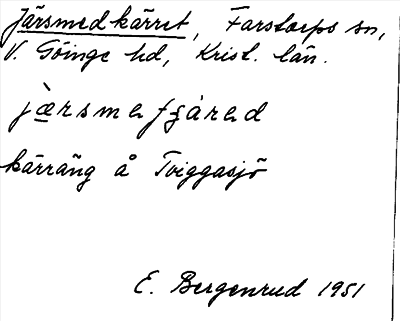 Järsmedkärret, Farstorps sn,
V. Göinge hd, Krist. län.
kärräng å Tviggasjö
E. Bergenrud 1951